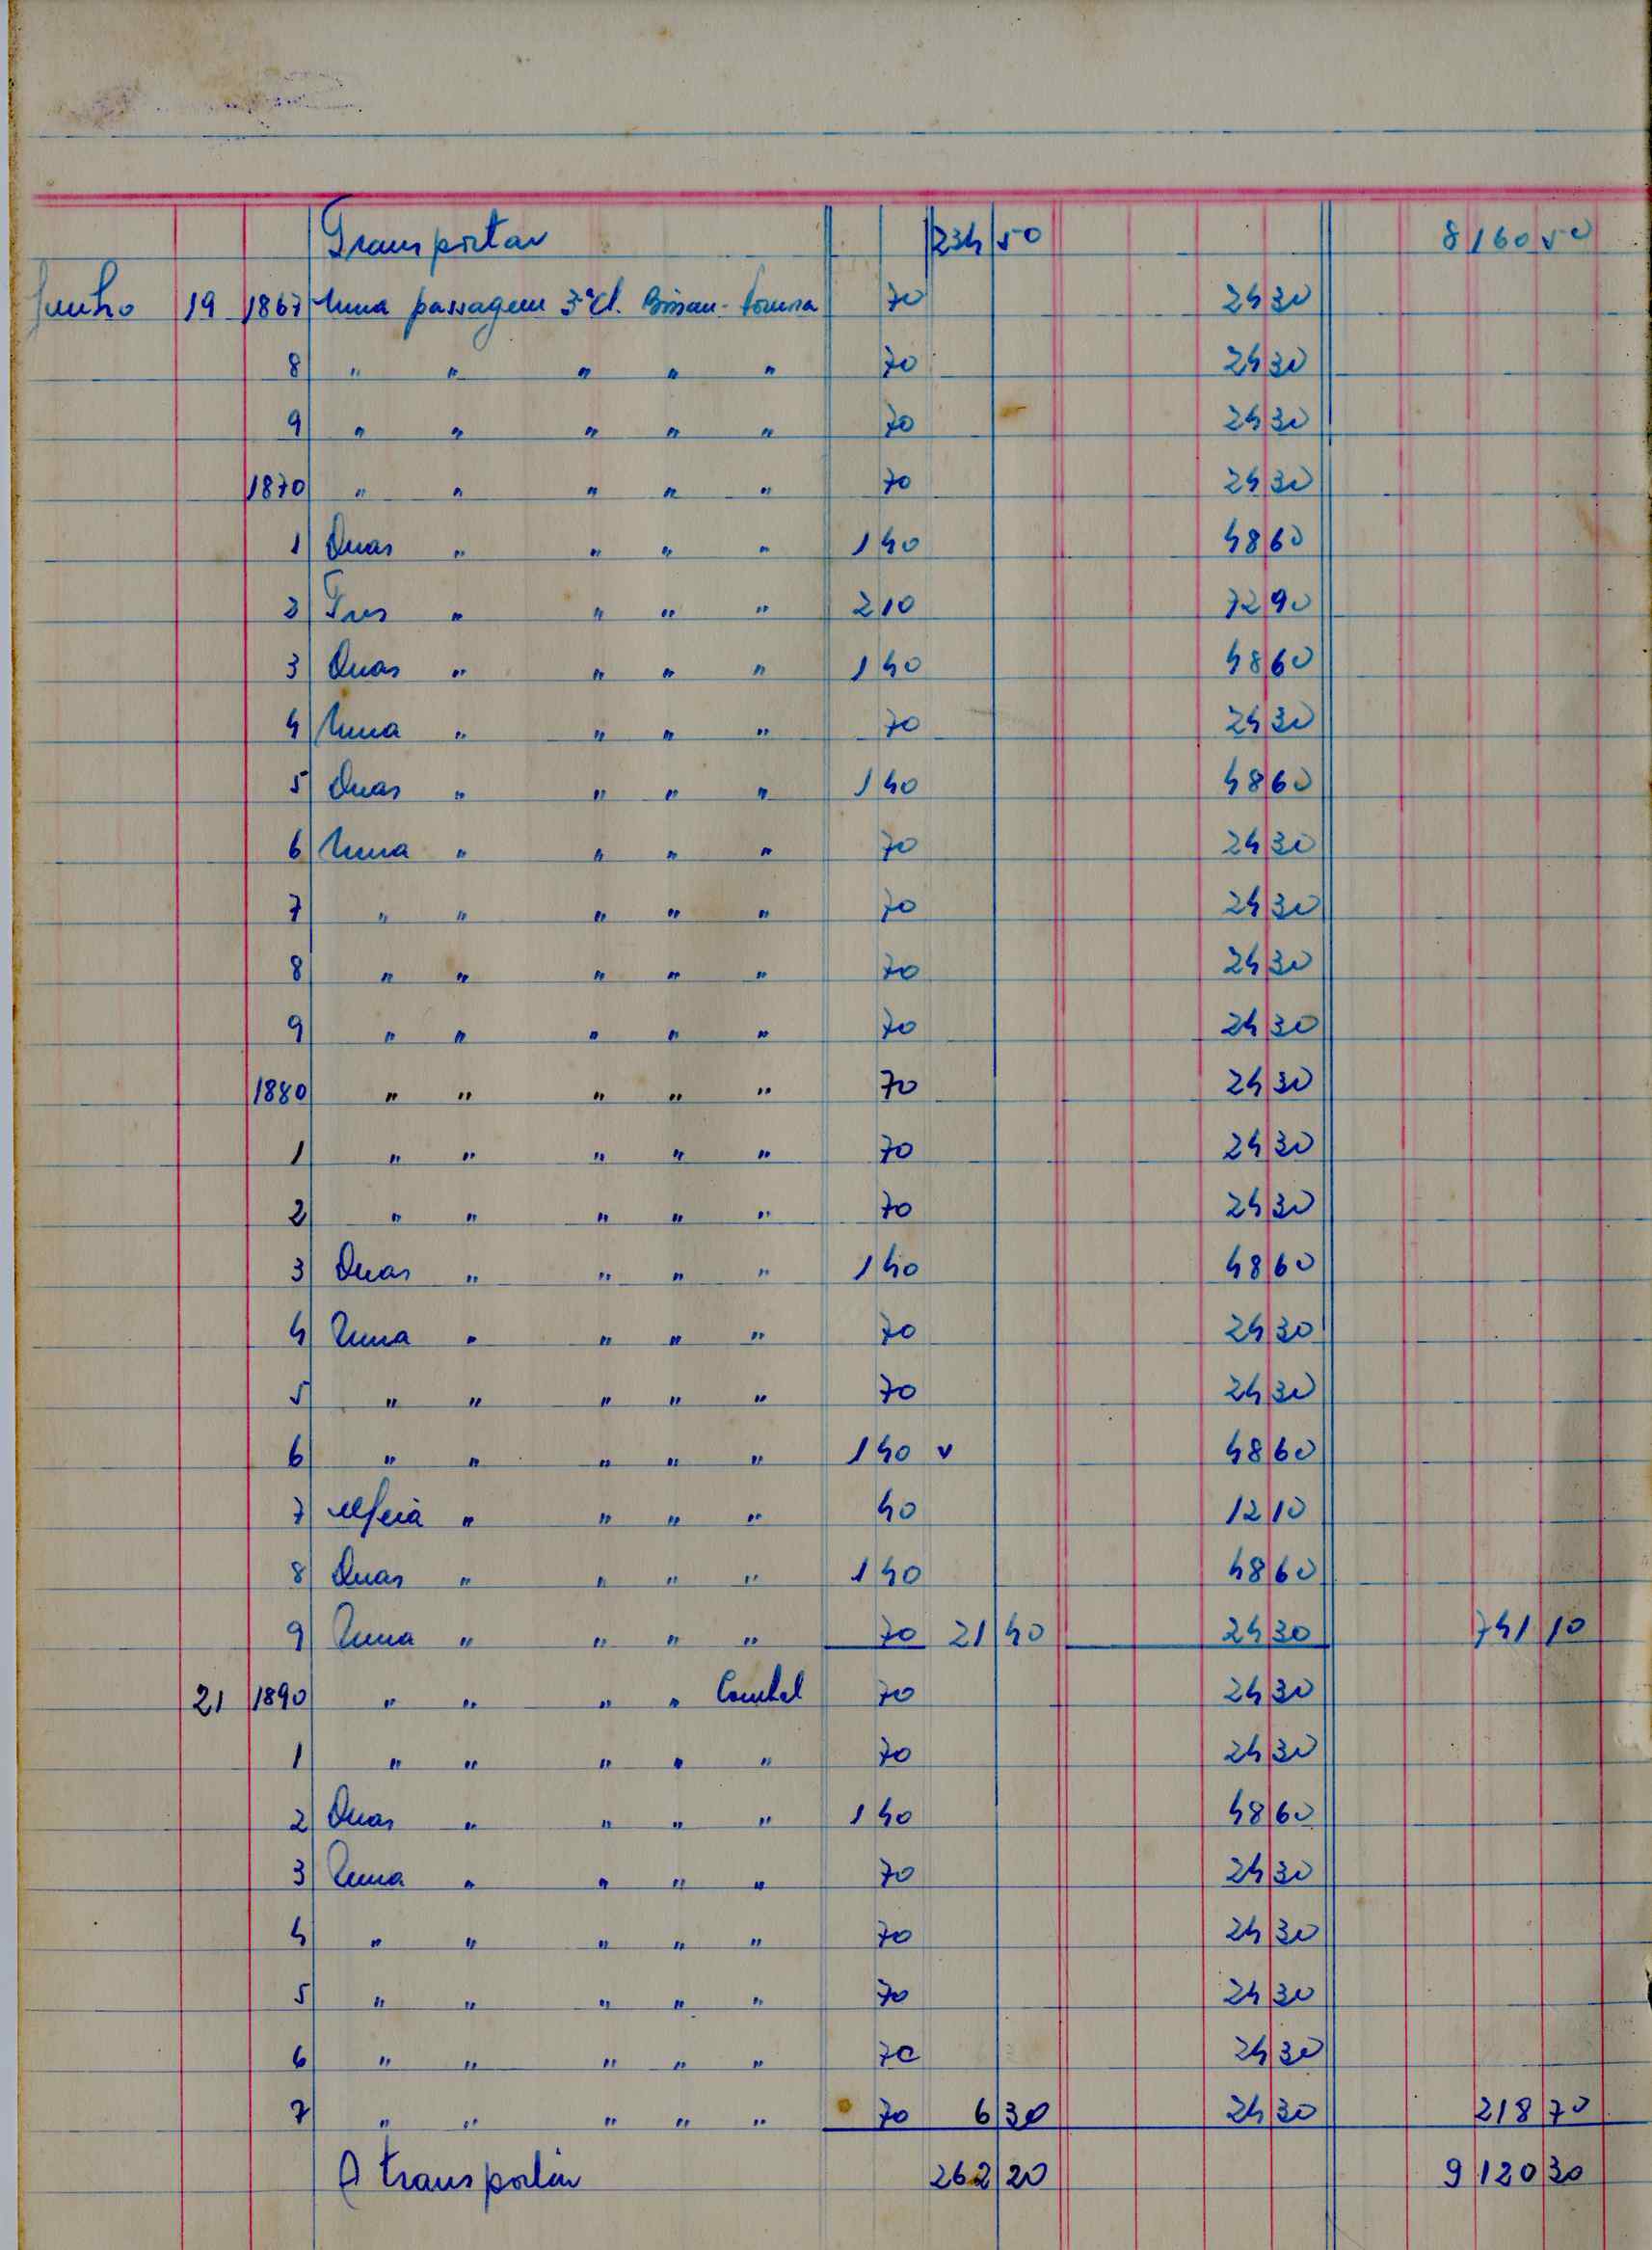 Transportar 234 50 8160 50
Junho 19 1867 Uma passagem 3ª cl. Bissau- 70 24 30
8 " " " " " 70 24 30
9 " " " " " 70 24 30
1870 " " " " " 70 24 30
1 Duas " " " " 140 48 60
2 Tres " " " " 210 72 90
3 Duas " " " " 140 48 60
4 Uma " " " " 70 24 30
5 Duas " " " " 140 48 60
6 Uma " " " " 70 24 30
7 " " " " " 70 24 30
8 " " " " " 70 24 30
9 " " " " " 70 24 30
1880 " " " " " 70 24 30
1 " " " " " 70 24 30
2 " " " " " 70 24 30
3 Duas " " " " 140 48 60
4 Uma " " " " 70 24 30
5 " " " " " 70 24 30
6 " " " " " 140 v 48 60
7 Meia " " " " 40 12 10
8 Duas " " " " 140 48 60
9 Uma " " " " 70 21 40 24 30 741 10
21 1890 " " " " 70 24 30
1 " " " " " 70 24 30
2 Duas " " " " 140 48 60
3 Uma " " " " 70 24 30
4 " " " " " 70 24 30
5 " " " " " 70 24 30
6 " " " " " 70 24 30
7 " " " " " 70 6 30 24 30 218 70
A transportar 262 20 9120 30